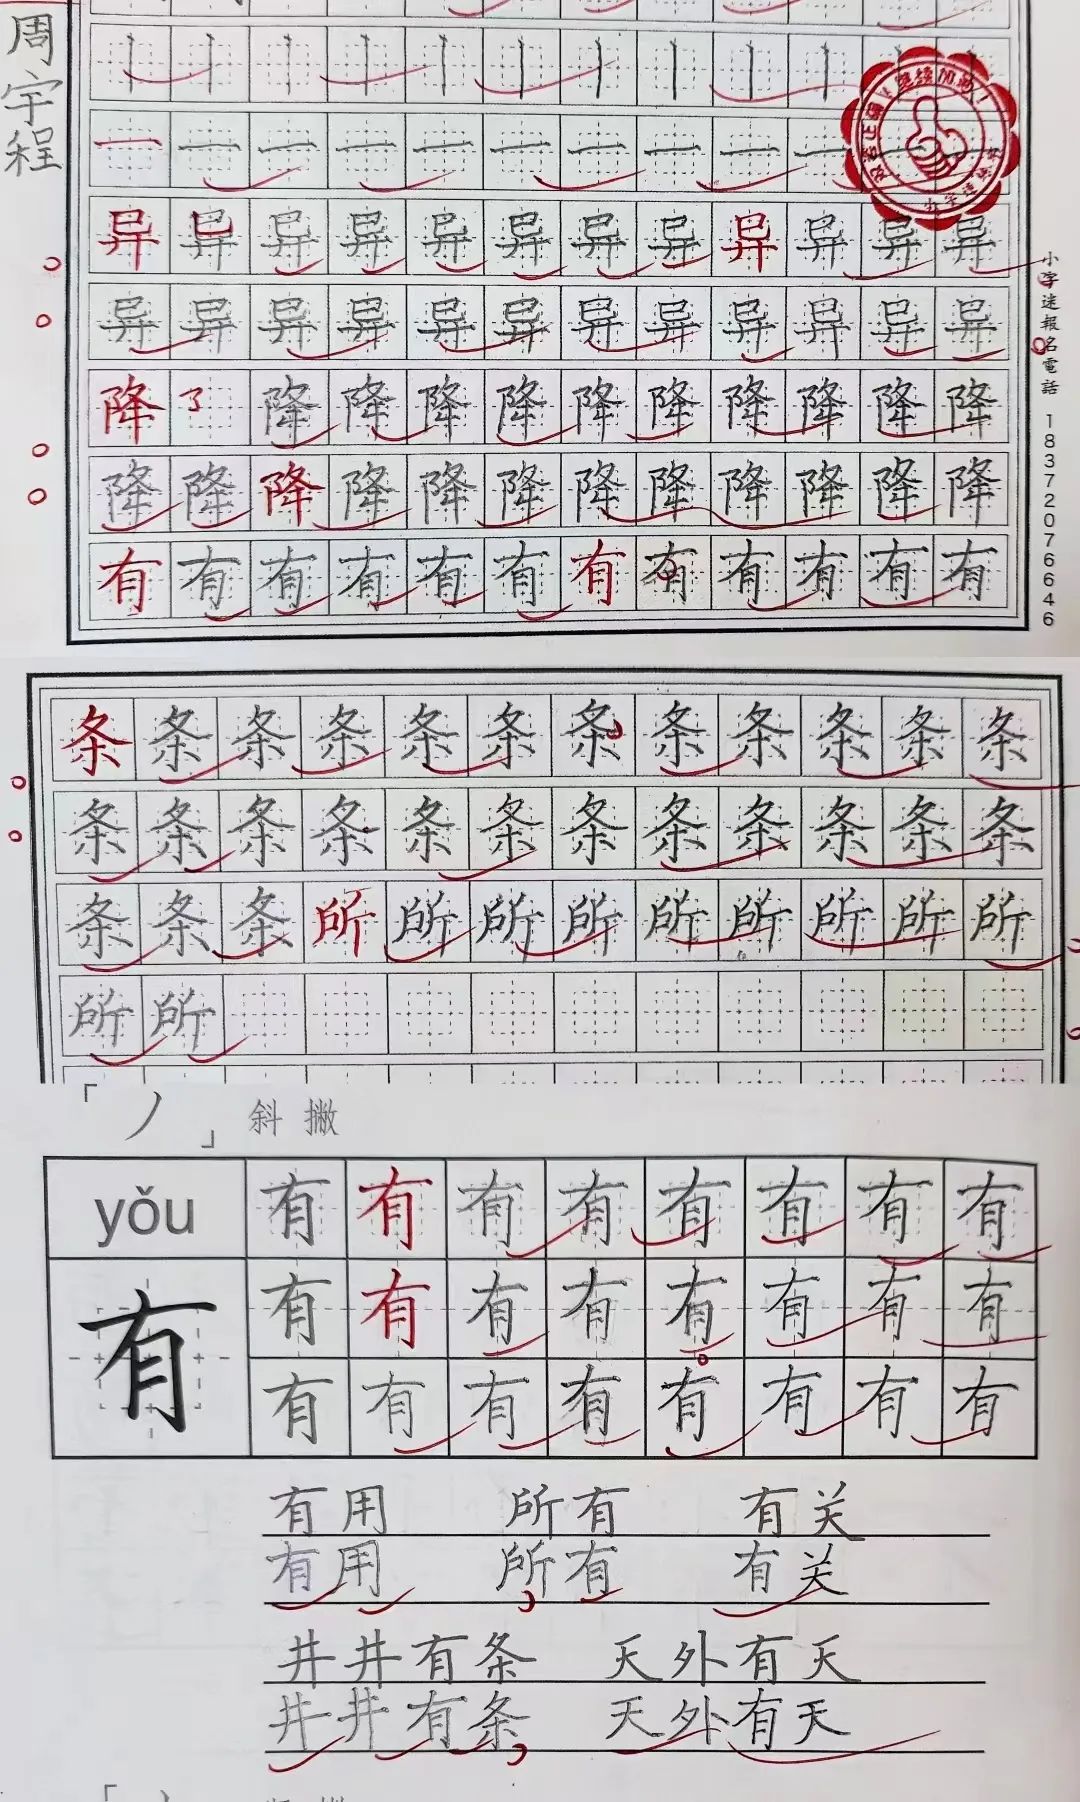 周宇程
一 一 一 一 一 一 一 一 一 一
异 异 异 异 异 异 异 异 异 异 异
异 异 异 异 异 异 异 异 异 异 异 异
降 降 降 降 降 降 降 降 降 降 降
降 降 降 降 降 降 降 降 降 降 降 降
有 有 有 有 有 有 有 有 有 有 有 有
继续加油!
小字迷報名電話 18372076646
条 条 条 条 条 条 条 条 条 条 条 条
条 条 条 条 条 条 条 条 条 条 条 条
条 条 条 所 所 所 所 所 所 所 所 所
所 所
「丿」斜撇
yǒu 有 有 有 有 有 有 有 有
有 有 有 有 有 有 有 有 有
有 有 有 有 有 有 有 有
有用 所有 有关
有用 所有 有关
井井有条 天外有天
井井有条 天外有天